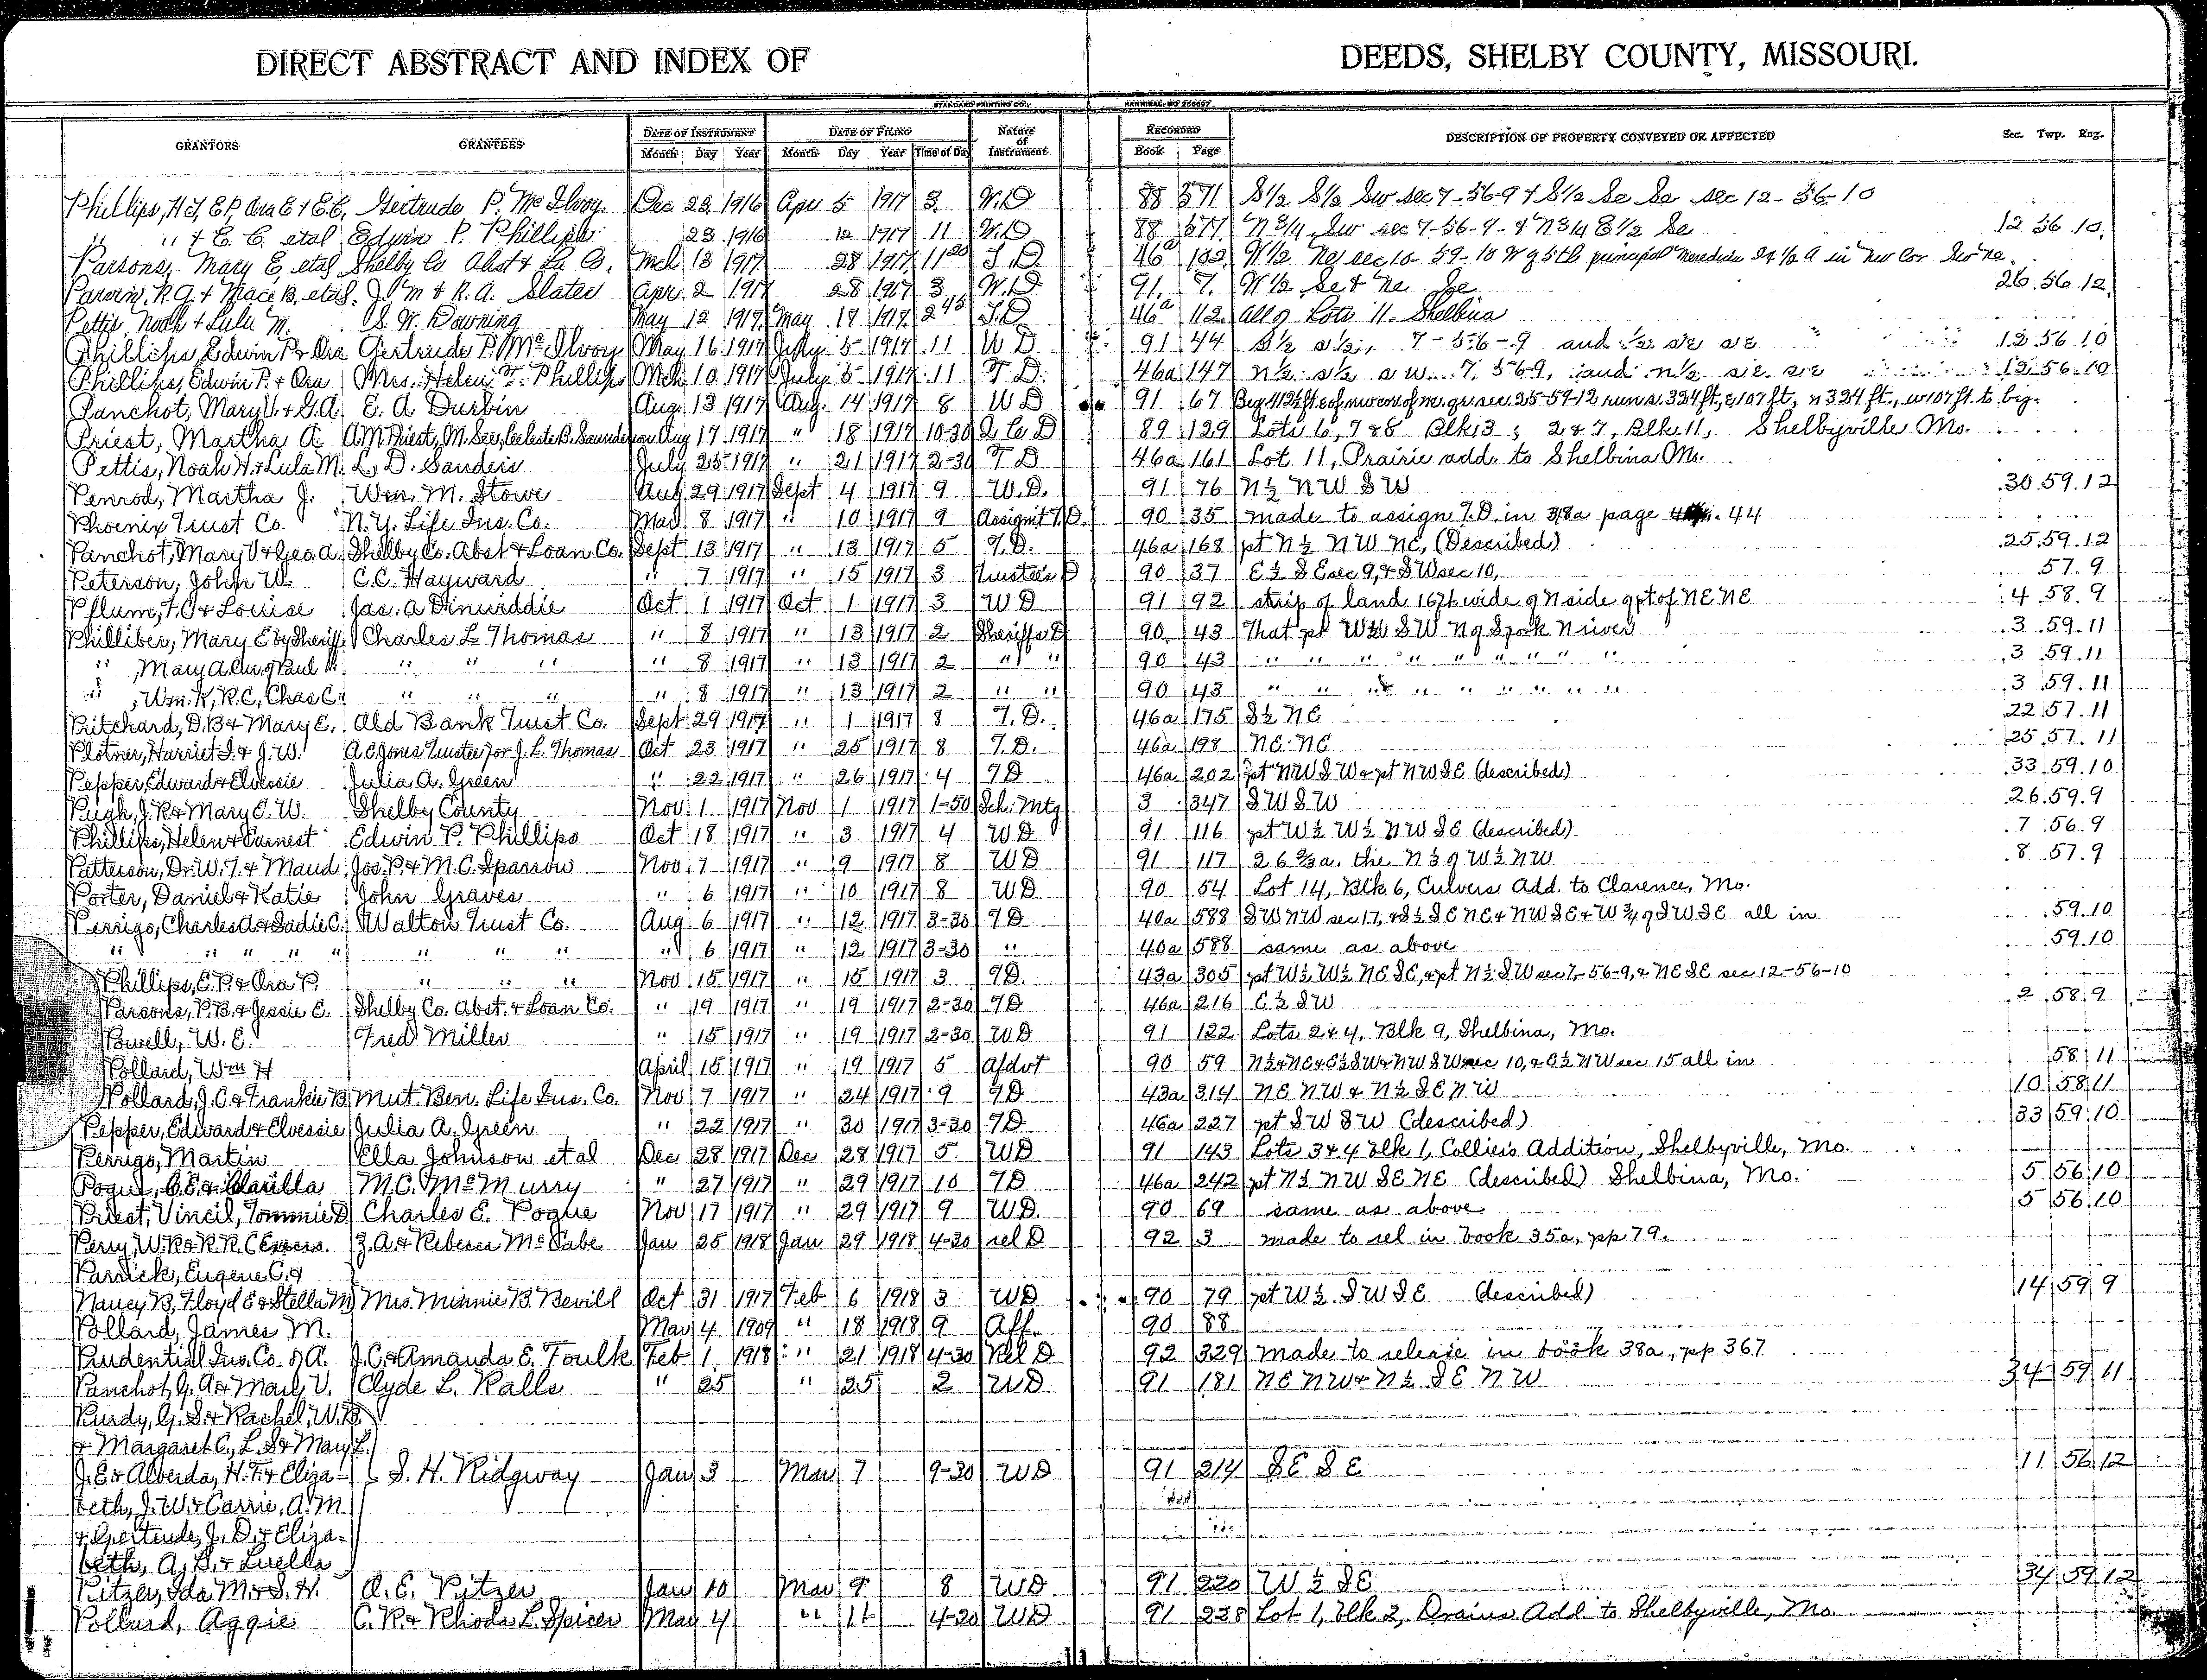 DIRECT ABSTRACT AND INDEX OF DEEDS, SHELBY COUNTY, MISSOURI.
STANDARD PRINTING CO., HANNIBAL, MO
GRANTORS GRANTEES DATE OF INSTRUMENT DATE OF FILING Nature of Instrument RECORDED DESCRIPTION OF PROPERTY CONVEYED OR AFFECTED Sec. Twp. Rng.
Month Day Year Month Day Year Time of Day Book Page
Phillips, H J, E P, Ora E & E.C. Gertrude P. McIlvoy. Dec 23 1916 Apr 5 1917 3 W.D 88 371 S1/2 S1/2 Sw sec 7-56-9 & S1/2 Se Se sec 12-56-10
" " & E. C. etal Edwin P. Phillips 23 1916 12 1917 11 W.D 88 377 N3/4 Sw sec 7-56-9- & N3/4 E1/2 Se 12 56 10
Parsons, Mary E, etal Shelby Co. Abst & Ln Co. Mch 13 1917 28 1917 11 20 T.D 46a 102 W1/2 Ne sec 10 59-10 W of 5th principal
R.A. & Mace B, etal. J. M & R. A. Slater Apr. 2 1917 28 1917 3 W.D 91 7 W1/2 Se & Ne Se 26.56.12
Pettis Noah & Lulu M. S. W. Downing May 12 1917 May 17 1917 2 45 T.D 46a 112 all of Lots 11 Shelbina
Phillips, Edwin P. & Ora Gertrude P. McIlvoy May 16 1917 July 5 1917 11 W D 91 44 S½ s½, 7-56-9 and ½ se se 12 56 10
Phillips, Edwin P. & Ora Mrs. Helen F. Phillips Mch 10 1917 July 5 1917 11 T D. 46a 147 n½ s½ s w 7 56 9, and n½ s.e. s.e 12-56-10
Panchot, Mary V. & G.A. E. A Durbin Aug. 13 1917 Aug. 14 1917 8 W D 91 67 Beg 412½ ft e of nw cor of ne qr sec 25-59-12 run s. 324 ft, e 107 ft, n 324 ft., w 107 ft. to beg.
Priest, Martha A. A.M Priest, M. See, Celeste B. Saunderson Aug 17 1917 " 18 1917 10-30 Q Co D 89 129 Lots 6, 7 & 8 Blk 3; 2 & 7, Blk 11, Shelbyville Mo.
Pettis, Noah H. & Lula M. L. D. Sanders July 25 1917 " 21 1917 2-30 T D 46a 161 Lot 11, Prairie add. to Shelbina Mo.
Penrod, Martha J. Wm. M. Stowe Aug 29 1917 Sept 4 1917 9 W.D. 91 76 N½ NW SW 30.59.12
Phoenix Trust Co. N.Y. Life Ins. Co. Mar 8 1917 " 10 1917 9 Assignt T.D. 90 35 made to assign T.D. in 38a page 44
Panchot, Mary V & Geo A. Shelby Co. Abst & Loan Co. Sept 13 1917 " 13 1917 5 T.D. 46a 168 pt N½ NW NE, (Described) 25.59.12
Peterson, John W. C.C. Hayward " 7 1917 " 15 1917 3 Trustee's D 90 37 E½ SE sec 9, & SW sec 10, 57.9
Pflum, F.C & Louise Jas. A Dinwiddie Oct 1 1917 Oct 1 1917 3 W D 91 92 strip of land 16ft wide of N side of pt of NE NE 4 58.9
Philliber, Mary E by Sheriff Charles L Thomas " 8 1917 " 13 1917 2 Sheriffs D 90 43 That pt W½ SW N of S fork N river 3 59.11
" , Mary A. Cur of Paul " " " " 8 1917 " 13 1917 2 " " 90 43 " " " " " " " " " 3 59.11
" , Wm. K, R.C, Chas C. " " " " 8 1917 " 13 1917 2 " " 90 43 " " " " " " " " 3 59.11
Pritchard, D.B & Mary E. Old Bank Trust Co. Sept 29 1917 " 1 1917 8 T.D. 46a 175 S½ NE 22 57.11
Plotner, Harriet S. & J.W. A.C. Jones Trustee for J.L. Thomas Oct 23 1917 " 25 1917 8 T.D. 46a 198 NE NE 25 57.11
Pepper, Edward & Elvessie Julia A. Green " 22 1917 " 26 1917 4 TD 46a 202 pt NW SW & pt NW SE (described) 33 59.10
Pugh, J.R & Mary E.W. Shelby County Nov 1 1917 Nov 1 1917 1-50 Sch. Mtg 3 347 SW SW 26 59.9
Phillips, Helen & Earnest Edwin P. Phillips Oct 18 1917 " 3 1917 4 WD 91 116 pt W½ W½ NW SE (described) 7 56.9
Patterson, Dr. W.T. & Maud Jos. P. & M.C. Sparrow Nov 7 1917 " 9 1917 8 WD 91 117 26⅔ a. the N½ of W½ NW 8 57.9
Porter, Daniel & Katie John Graves " 6 1917 " 10 1917 8 WD 90 54 Lot 14, Blk 6, Culvers Add. to Clarence, Mo.
Perrigo, Charles A & Sadie C. Walton Trust Co. Aug 6 1917 " 12 1917 3-30 TD 40a 588 SW NW sec 17, & S½ SE NE & NW SE & W¾ of SW SE all in 59.10
" " " " " " " " " 6 1917 " 12 1917 3-30 " 40a 588 same as above 59.10
Phillips, E.P. & Ora P. " " " Nov 15 1917 " 15 1917 3 TD. 43a 305 pt W½ W½ NE SE, & pt N½ SW sec 7-56-9, & NE SE sec 12-56-10
Parsons, P.B. & Jessie E. Shelby Co. Abst. & Loan Co. " 19 1917 " 19 1917 2-30 TD 46a 216 E½ SW 2 58 9
Powell, W. E. Fred Miller " 15 1917 " 19 1917 2-30 WD 91 122 Lots 2 & 4, Blk 9, Shelbina, Mo.
Pollard, Wm H April 15 1917 " 19 1917 5 Afdvt 90 59 N½ & NE & E½ SW & NW SW sec 10, & E½ NW sec 15 all in 58 11
Pollard, J.C. & Frankie B Mut. Ben. Life Ins. Co. Nov 7 1917 " 24 1917 9 TD 43a 314 NE NW & N½ SE NW 10 58 11
Pepper, Edward & Elvessie Julia A. Green " 22 1917 " 30 1917 3-30 TD 46a 227 pt SW SW (described) 33 59.10
Perrigo, Martin Ella Johnson et al Dec 28 1917 Dec 28 1917 5 WD 91 143 Lots 3 & 4 Blk 1, Collier's Addition, Shelbyville, Mo.
Pogue, C.E. & Clarilla M.C. McMurry " 27 1917 " 29 1917 10 TD 46a 242 pt N½ NW SE NE (described) Shelbina, Mo. 5 56.10
Priest, Vincil, Tommie D Charles E. Pogue Nov 17 1917 " 29 1917 9 WD. 90 69 same as above 5 56.10
Perry, W.R & R.R. C Execrs. Z.A. & Rebecca McCabe Jan 25 1918 Jan 29 1918 4-30 rel D 92 3 made to rel in book 35a, pp 79.
Parrick, Eugene C. &
Nancy B, Floyd E & Stella M Mrs. Minnie B. Bevill Oct 31 1917 Feb 6 1918 3 WD 90 79 pt W½ SW SE (described) 14 59 9
Pollard, James M. Mar 4 1909 " 18 1918 9 Aff. 90 88
Prudential Ins. Co. of A. J.C. & Amanda E. Foulk Feb 1 1918 " 21 1918 4-30 Rel D 92 329 made to release in book 38a, pp 367
Panchot, G. A & Mary V. Clyde L. Ralls " 25 " 25 2 WD 91 181 NE NW & N½ SE NW 34 59 11
Purdy, G. S. & Rachel, W.B.
& Margaret C., L. S & Mary L.
J.E. & Alverda, H.F. & Eliza- S. H. Ridgway Jan 3 Mar 7 9-30 WD 91 214 SE SE 11 56 12
beth, J.W. & Carrie, A.M.
& Gertrude, J. D. & Eliza-
beth, A. S. & Luella
Pitzer, Ida M. & S. H. A. E. Pitzer Jan 10 Mar 9 8 WD 91 220 W½ SE 34 59 12
Pollard, Aggie C. R. & Rhoda L. Spicer Mar 4 " 11 4-20 WD 91 228 Lot 1, Blk 2, Drains Add to Shelbyville, Mo